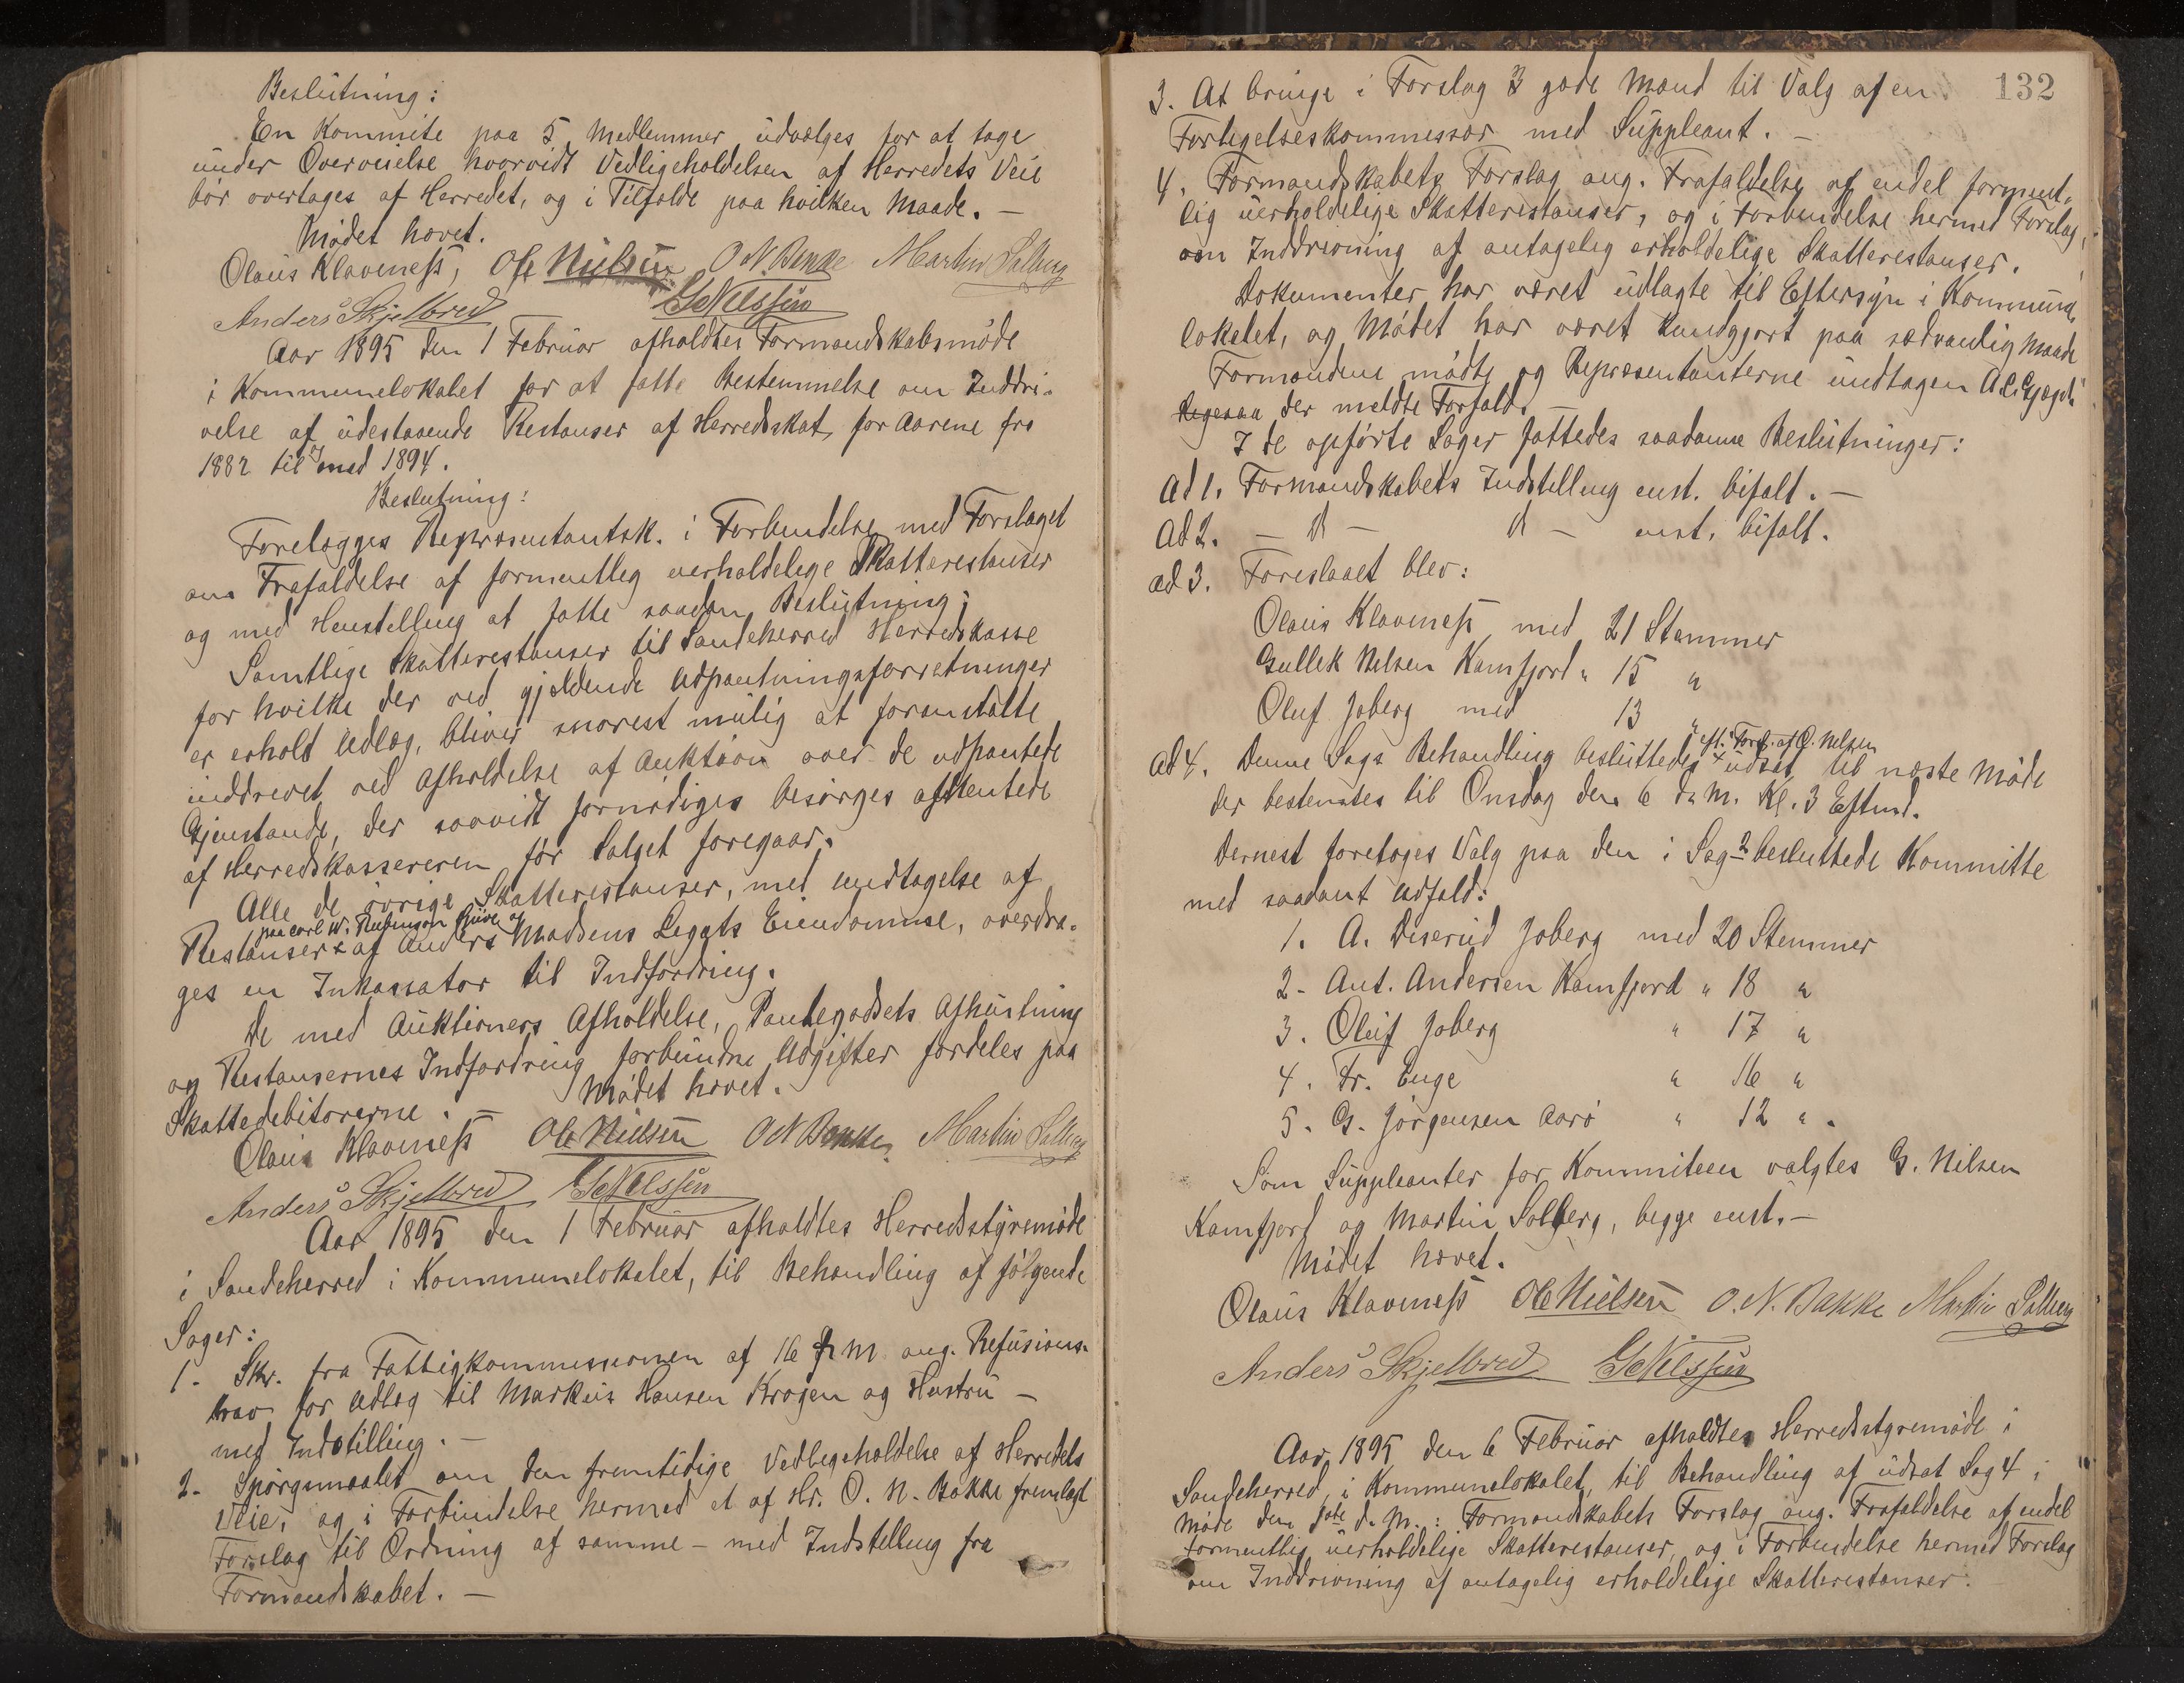 Beslutning:
En Kommite paa 5 Medlemmer udvælges for at tage
under Overveielse hvorvidt Vedligeholdelsen af Herredets Veie
bør overtages af Herredet, og i Tilfælde paa hvilken Maade. —
Mødet hævet.
Olaus Klavenesz, Ole Nielsen O N. Bakke Martin Solberg
Anders Skjelbred G Nilssen
Aar 1895 den 1 Februar afholdtes Formandskabsmøde
i Kommunelokalet for at fatte Bestemmelse om Inddri-
velse af udestaaende Restanser af Herredsskat for Aarene fra
1882 til og med 1894.
Beslutning:
Forelægges Repræsentantsk. i Forbindelse med Forslaget
om Frafaldelse af formentlig uerholdelige Skatterestanser
og med Henstilling at fatte saadan Beslutning:
Samtlige Skatterestanser til Sandeherred Herredskasse
for hvilke der ved gjældende Udpantningsforretninger
er erholdt Udlæg, bliver snarest mulig at foranstalte
inddrevet ved Afholdelse af Auktion over de udpantede
Gjenstande, der saavidt fornødiges besørges afhentede
af Herredskassereren før Salget foregaar.
Alle de øvrige Skatterestanser, med Undtagelse af
paa Carl W. Rubinson Huve og
Restanser x af Anders Madsens Legats Eiendomme, overdra-
ges en Inkassator til Indfordring.
De med Auktioners Afholdelse, Pantegodsets Afhentning
og Restansernes Indfordring forbundne Udgifter fordeles paa
Skattedebitorerne. — Mødet hævet.
Olaus Klavenesz Ole Nielsen O N Bakke Martin Solberg
Anders Skjelbred G Nilssen
Aar 1895 den 1 Februar afholdtes Herredsstyremøde
i Sandeherred i Kommunelokalet, til Behandling af følgende
Sager:
1. Skr. fra Fattigkommissionen af 16 f. M. ang. Refusions-
krav for Udlæg til Markus Hansen Krogen og Hustru —
med Indstilling. —
2. Spørgsmaalet om den fremtidige Vedligeholdelse af Herredets
Veie, og i Forbindelse hermed et af Hr. O. N. Bakke fremlagt
Forslag til Ordning af samme — med Indstilling fra
Formandskabet. —
132
3. At bringe i Forslag 3 gode Mænd til Valg af en
Forligelseskommissær med Suppleant. —
4. Formandskabets Forslag ang. Frafaldelse af endel forment-
lig uerholdelige Skatterestanser, og i Forbindelse hermed Forslag
om Inddrivning af antagelig erholdelige Skatterestanser.
Dokumenter har været udlagte til Eftersyn i Kommune-
lokalet, og Mødet har været kundgjort paa sædvanlig Maade
Formændene mødte og Repræsentanterne undtagen A. C.
der meldte Forfald. —
I de opførte Sager fattedes saadanne Beslutninger:
Ad 1. Formandskabets Indstilling enst. bifalt. —
Ad 2. — d — d — enst. bifalt.
ad 3. Foreslaaet blev:
Olaus Klavenesz med 21 Stemmer
Gullik Nilsen Kamfjord " 15 "
Oluf Joberg med 13 "
eft. Forl. af O. Nilsen
Ad 4. Denne Sags Behandling besluttedes x udsat til næste Møde
der bestemtes til Onsdag den 6 d. M. Kl. 3 Eftmd.
Dernest foretoges Valg paa den i Sag 2 besluttede Kommitte
med saadant Udfald:
1. A. Diserud Joberg med 20 Stemmer
2- Ant. Andersen Kamfjord " 18 "
3. Oluf Joberg " 17 "
4. Fr. Enge " 16 "
5. G. Jørgensen Aarø " 12 ".
Som Suppleanter for Kommiteen valgtes G. Nilsen
Kamfjord og Martin Solberg, begge enst. —
Mødet hævet.
Olaus Klavenesz Ole Nielsen O. N. Bakke Martin Solberg
Anders Skjelbred G Nilssen
Aar 1895 den 6 Februar afholdtes Herredsstyremøde i
Sandeherred, i Kommunelokalet, til Behandling af udsat Sag 4 i
Møde den 1ste d. M.: Formandskabets Forslag ang. Frafaldelse af endel
formentlig uerholdelige Skatterestanser, og i Forbindelse hermed Forslag
om Inddrivning af antagelig erholdelige Skatterestanser.